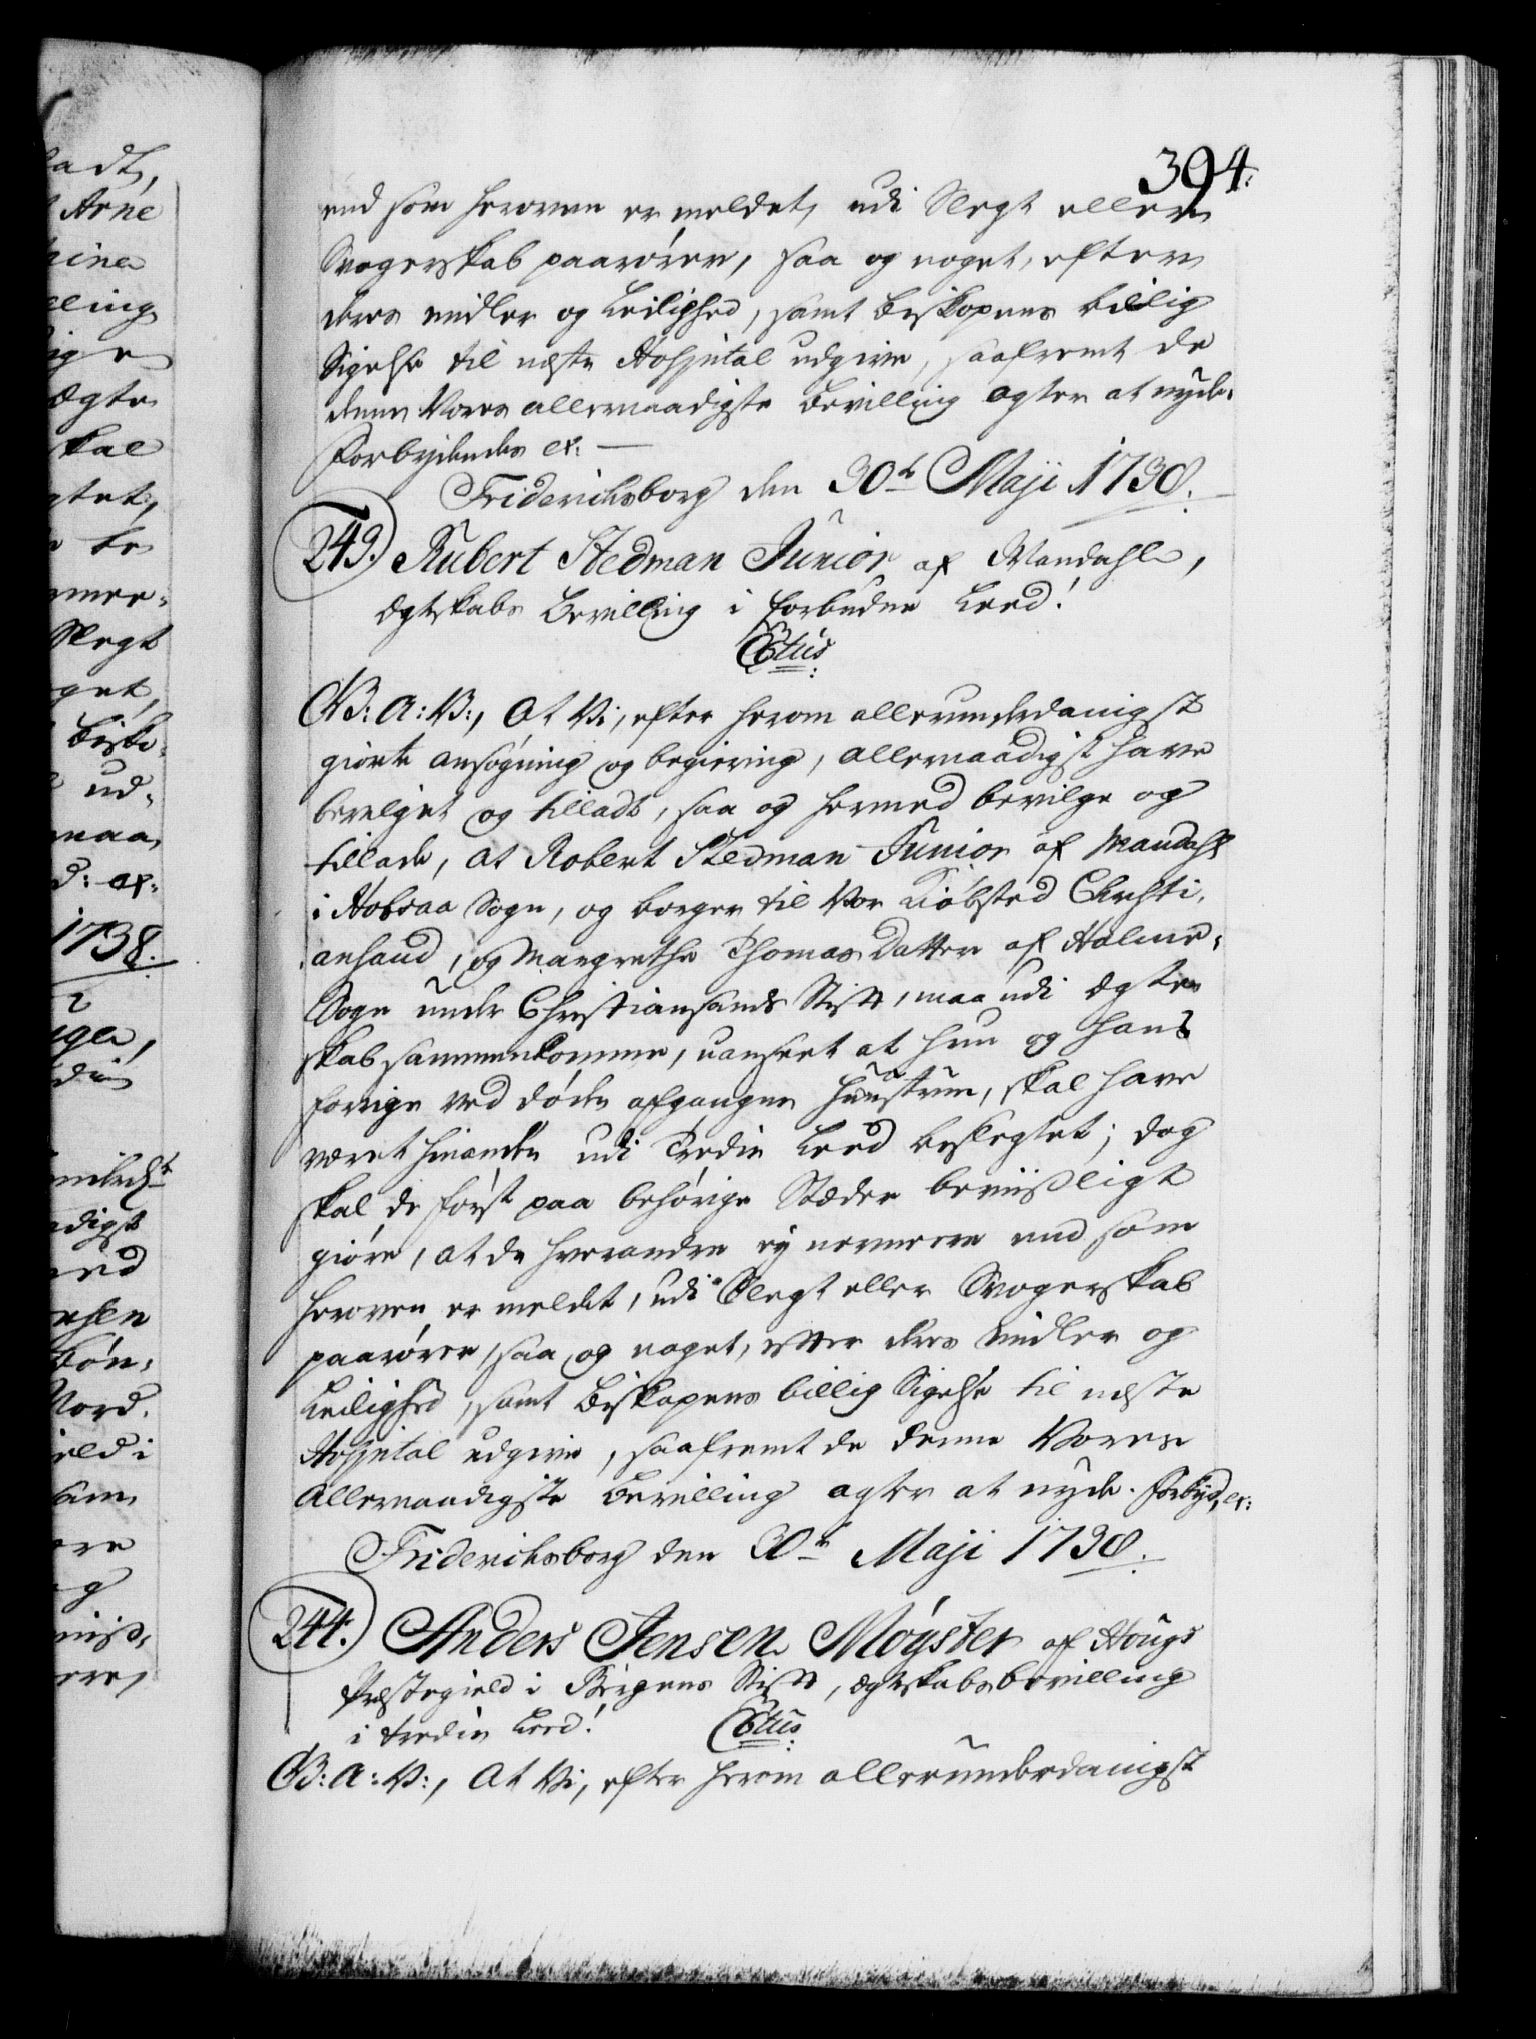 394.
end som heroven er meldet, udi Slegt eller
Svogerskab paarører, saa og noget, efter
deres midler og Leilighed, samt Biskopens billig
Sigelse til neste Hospital udgive, saafremt de
denne Vores allernaadigste Bevilling agter at nyde.
Forbydendes etc: —
Friderichsborg den 30te Maji 1738.
243. Rubert Stedman Junior af Mandahl,
Ægteskabs Bevilling i forbudne Leed!
Cþtus
G: A: V:, At Vi, efter herom allerunderdanigst
giorte ansøgning og begiering, allernaadigst have
bevilget og tilladt, saa og hermed bevilge og
tillade, at Robert Stedman Junior af Mandahl
i Hobraa Sogn, og borger til Vor Kiøbsted Christi-
ansand, og Margrethe Thomas Datter af Holme-
Sogn under Christiansands Stift, maa udi Ægte-
skab sammenkomme, uanseet at hun og hans
forrige ved døden afgangne Huustrue, skal have
været hinanden udi Tredie Leed beslegtet; dog
skal de først paa behørige Stæder beviisligt
giøre, at de hverandre ey nermere end som
heroven er meldet, udi Slegt eller Svogerskab
paarører, saa og noget, efter deres Midler og
Leilighed, samt Biskopens billig Sigelse til neste
Hospital udgive, saafremt de denne Vores
Allernaadigste Bevilling agter at nyde. Forbyd, etc:
Friderichsborg den 30te Maji 1738.
244. Anders Jensen Møyster af Hougs
Præstegield i Bergens Stift, Ægteskabsbevilling
i tredie Leed! Cþtus
G: A: V:, At Vi, efter herom allerunderdanigst